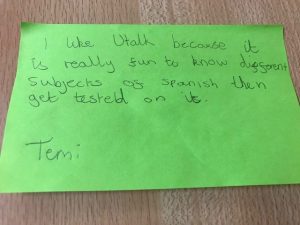 I like Utalk because it
is really fun to know different
subjects of spanish then
get tested on it.
Temi